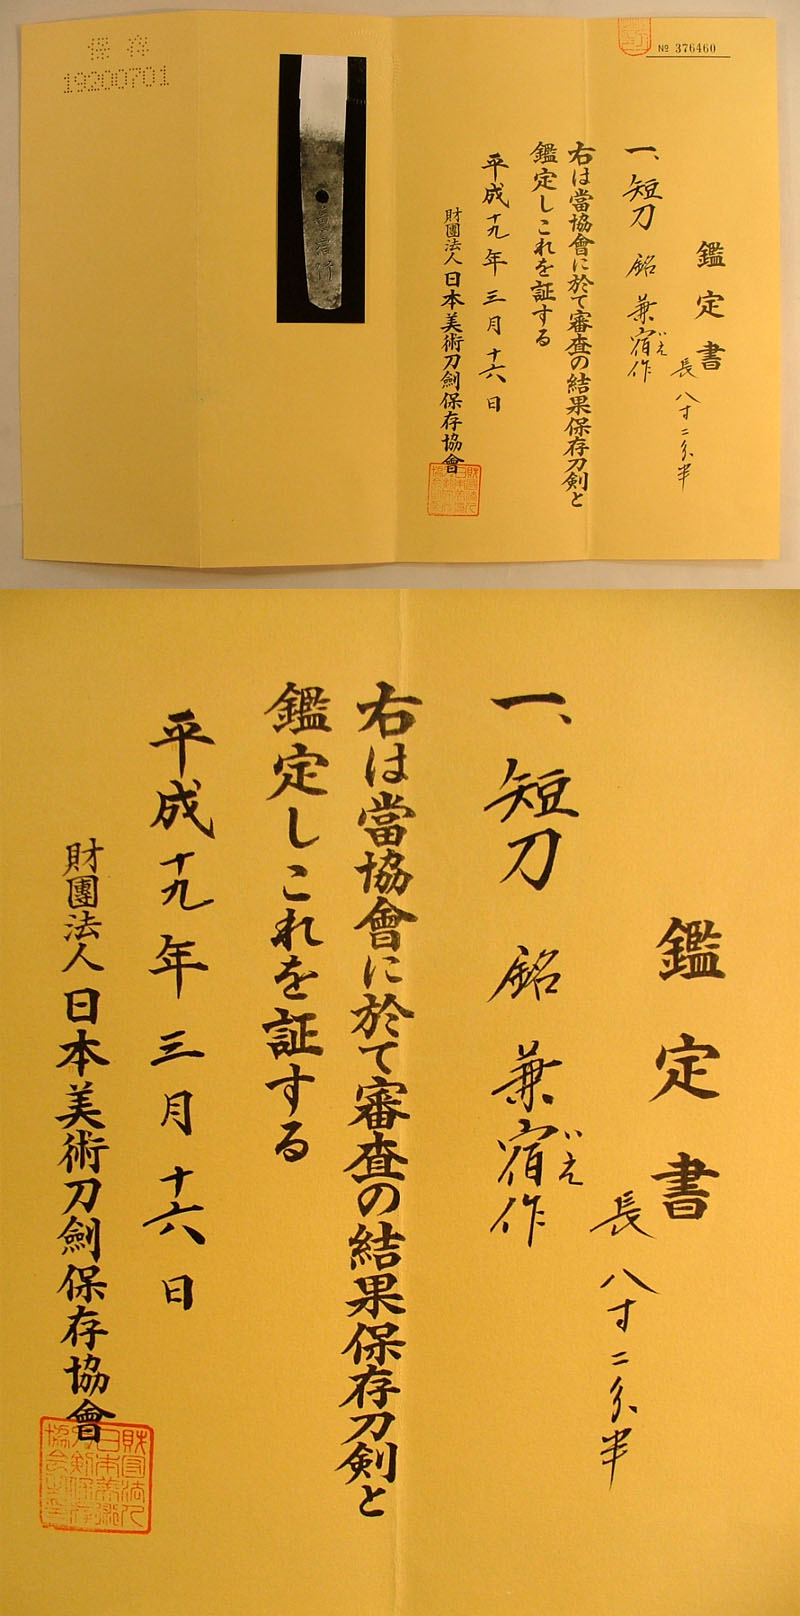 保存
19200701
№ 376460
鑑定書
一、短刀 銘 兼宿作
いえ
長八寸二分半
右は當協會に於て審査の結果保存刀剣と
鑑定しこれを証する
平成十九年三月十六日
財團法人日本美術刀劍保存協會
鑑定書
一、短刀 銘 兼宿作
いえ
長八寸二分半
右は當協會に於て審査の結果保存刀剣と
鑑定しこれを証する
平成十九年三月十六日
財團法人日本美術刀劍保存協會